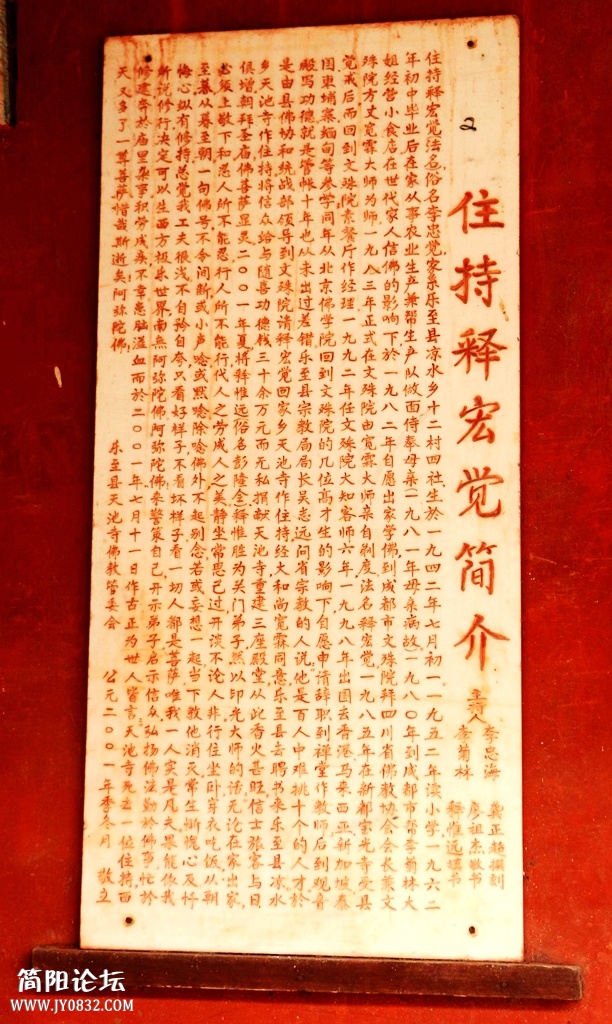 2
住持释宏觉简介
主持人 李忠海 李菊林
龚正超撰刻
廖祖杰敬书
释惟远填书
住持释宏觉法名俗名李忠觉家系乐至县凉水乡十二村四社生於一九四二年七月初一一九五二年读小学一九六二
年初中毕业后在家从事农业生产兼帮生产队做面侍奉母亲一九八一年母亲病故一九八〇年到成都市帮李菊林大
姐经营小食店在世代家人信佛的影响下於一九八二年自愿出家学佛到成都市文殊院拜四川省佛教协会会长兼文
殊院方丈宽霖大师为师一九八三年正式在文殊院由宽霖大师亲自剃度法名释宏觉一九八五年在新都宝光寺受具
觉戒后而回到文殊院素餐厅作经理一九九二年任文殊院大知客师六年一九九八年出国去香港马来西亚新加坡泰
国柬埔寨缅甸等参学同年从北京佛学院回到文殊院的几位高才生的影响下自愿申请辞职到禅堂作教师后到观音
殿写功德就是管帐十年也从未出过差错乐至县宗教局局长吴志远问省宗教的人说他是百人中难挑十个的人才於
是由县佛协和统战部领导到文殊院请释宏觉回家乡天池寺作住持经大和尚宽霖同意乐至县去聘书来乐至县凉水
乡天池寺作住持将信众给与随喜功德钱三十余万元而无私捐献天池寺重建三座殿堂从此香火甚旺信士旅客与日
俱增朝拜圣庙佛菩萨显灵二〇〇一年夏将释惟远俗名彭隆金释惟胜为关门弟子然以印光大师的话无论在家出家
必须上敬下和忍人所不能忍行人所不能行代人之劳成人之美静坐常思己过开谈不论人非行住坐卧穿衣吃饭从朝
至暮从暮至朝一句佛号不令间断或小声唸或默唸除唸佛外不起别念若或妄想一起当下教他消灭常生惭愧心及忏
悔心纵有修持总觉我工夫很浅不自矜自夸只看好样子不看坏样子看一切人都是菩萨唯我一人实是凡夫果能依我
所说修行决定可以生西方极乐世界南无阿弥陀佛阿弥陀佛来警策自己开示弟子启示信众弘扬佛法勤於佛事忙於
修建奔於庙里杂事积劳成疾不幸患脑溢血而於二〇〇一年七月十一日作古正为世人皆言天池寺死去一位住持西
天又多了一尊菩萨惜哉斯逝矣阿弥陀佛
乐至县天池寺佛教管委会
公元二〇〇一年季冬月 敬立
简阳论坛
WWW.JY0832.COM